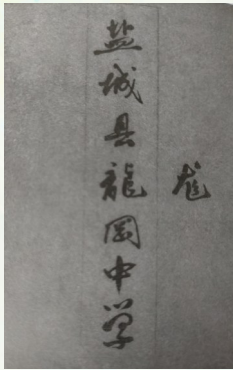 盐城县龍岡中学